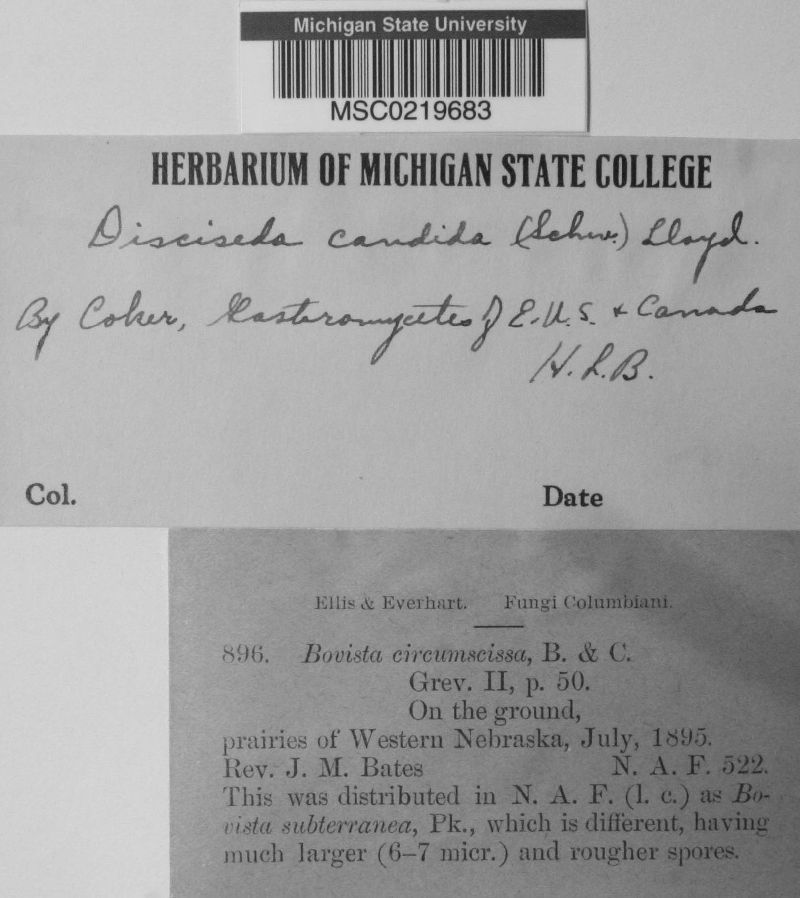 Michigan State University
MSC0219683
HERBARIUM OF MICHIGAN STATE COLLEGE
Disciseda candida (Schw.) Lloyd.
By Coker, Gasteromycetes of E.U.S. & Canada
H.L.B.
Col. Date
Ellis & Everhart. Fungi Columbiani.
896. Bovista circumscissa, B. & C.
Grev. II, p. 50.
On the ground,
prairies of Western Nebraska, July, 1895.
Rev. J. M. Bates N. A. F. 522.
This was distributed in N. A. F. (l. c.) as Bo-
vista subterranea, Pk., which is different, having
much larger (6–7 micr.) and rougher spores.